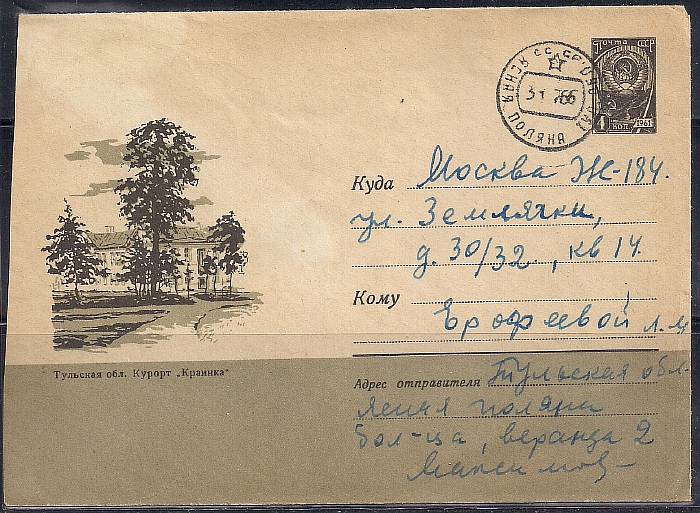 Почта СССР
4 коп 1961
ЯСНАЯ ПОЛЯНА
Куда Москва Ж-184.
ул. Землячки,
д. 30/32, кв 14.
Кому
Ерофеевой Л. М
Тульская обл. Курорт „Краинка"
Адрес отправителя Тульская обл.
Ясная поляна
бол-ца, веранда 2